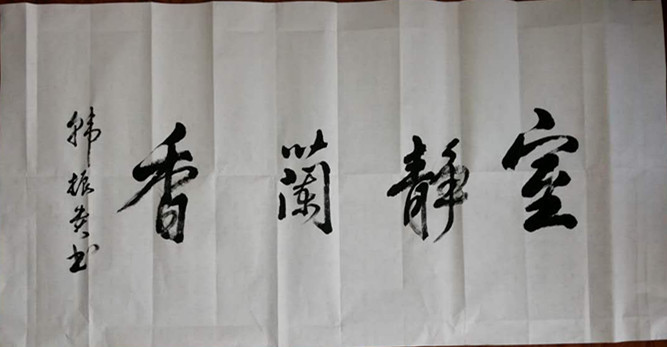 室静蘭香
韩振黄书